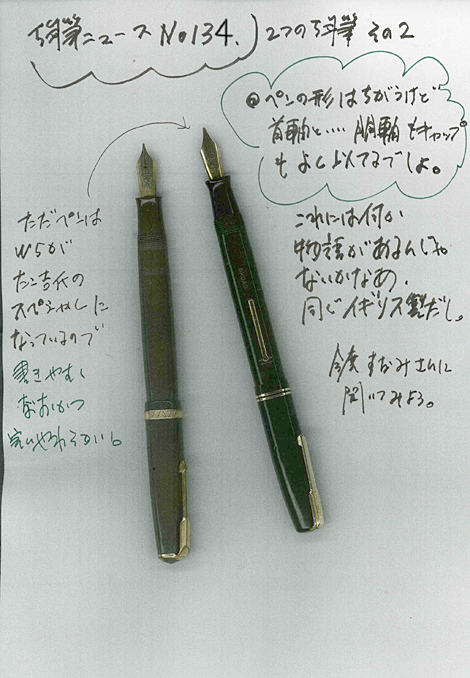 筆ニュース No134.
2つの 筆 その2
@ペンの形はちがうけど
首軸と…. 胴軸もキャップ
もよく似てるでしょ。
ただペンは
W5が
たこ吉氏の
スペシャルに
なっているので
書きやすく
なおかつ
これには何か
物語があるんじゃ
ないかなあ.
同じイギリス製だし。
まなみさんに
聞いてみよう。